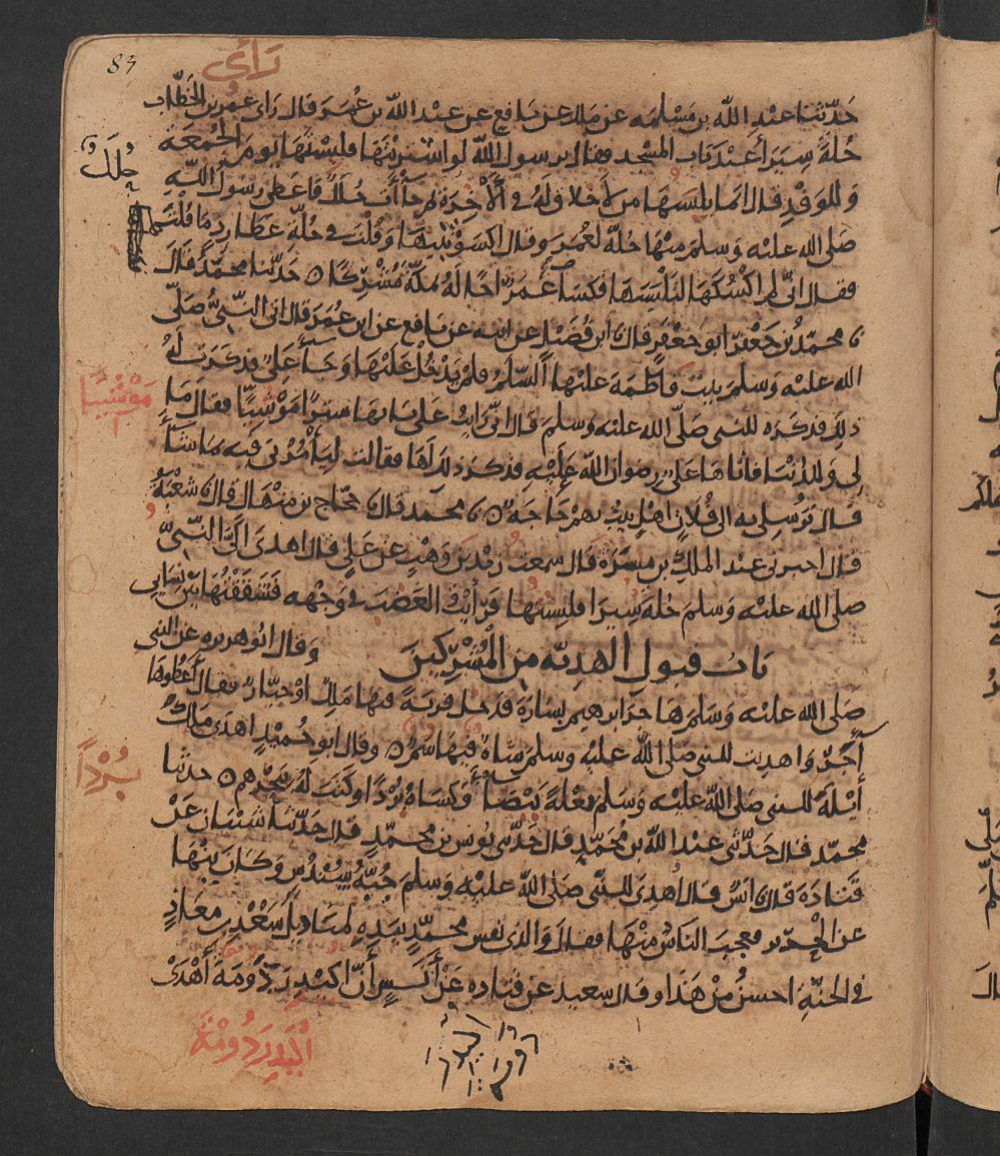 83
رأى
حدثنا عبد الله بن مسلمه عن ملك عن نافع عن عبد الله بن عمر قال رأى عمر بن الخطاب
حلة سيرا عند باب المسجد فقال يرسول الله لو اشتريتها فلبستها يوم الجمعة
حلل
وللوفد قال انما يلبسها من لا خلاق له في الآخرة ثم جاءت حلل فاعطى رسول الله
صلى الله عليه وسلم منها حلة لعمر وقال اكسوتنيها وقلت في حلة عطارد ما قلت
فقال اني لم اكسكها لتلبسها فكسا عمر اخا له بمكة مشركا ه حدثنا محمد قال
محمد بن جعفر ابو جعفر قال ابن فضيل عن ابيه عن نافع عن ابن عمر قال اتى النبي صلى
الله عليه وسلم بيت فاطمة عليها السلم فلم يدخل عليها وجاء علي فذكرت له
موشيا
ذلك فذكره للنبي صلى الله عليه وسلم قال اني رايت على بابها سترا موشيا فقال ما
لي وللدنيا فاتاها علي رضوان الله عليه فذكر ذلك لها فقالت ليأمرني فيه ما شاء
قال ترسلي به الى فلان اهل بيت بهم حاجه ه محمد قال حجاج بن منهال قال شعبة
قال اخبرني عبد الملك بن ميسرة قال سمعت زيد بن وهب عن علي قال اهدى الي النبي
صلى الله عليه وسلم حلة سيرا فلبستها فرأيت الغضب في وجهه فشققتها بين نسايي
باب قبول الهديه من المشركين وقال ابو هريره عن النبي
صلى الله عليه وسلم هاجر ابرهيم بسارة فدخل قرية فيها ملك او جبار فقال أعطوها
آجر واهديت للنبي صلى الله عليه وسلم شاة فيها سم ه وقال ابو حميد اهدى ملك
بردا
أيلة للنبي صلى الله عليه وسلم بغلة بيضاء وكساه بردا وكتب له ببحرهم ه حدثنا
محمد قال حدثني عبد الله بن محمد قال حدثني يونس بن محمد قال حدثنا شيبان عن
قتادة قال انس قال اهدي للنبي صلى الله عليه وسلم جبة سندس وكان ينهى
عن الحرير فعجب الناس منها فقال والذي نفس محمد بيده لمناديل سعد بن معاذ
في الجنة احسن من هذا وقال سعيد عن قتاده عن أنس أن اكيدر دومة أهدى
اكيدر دومة